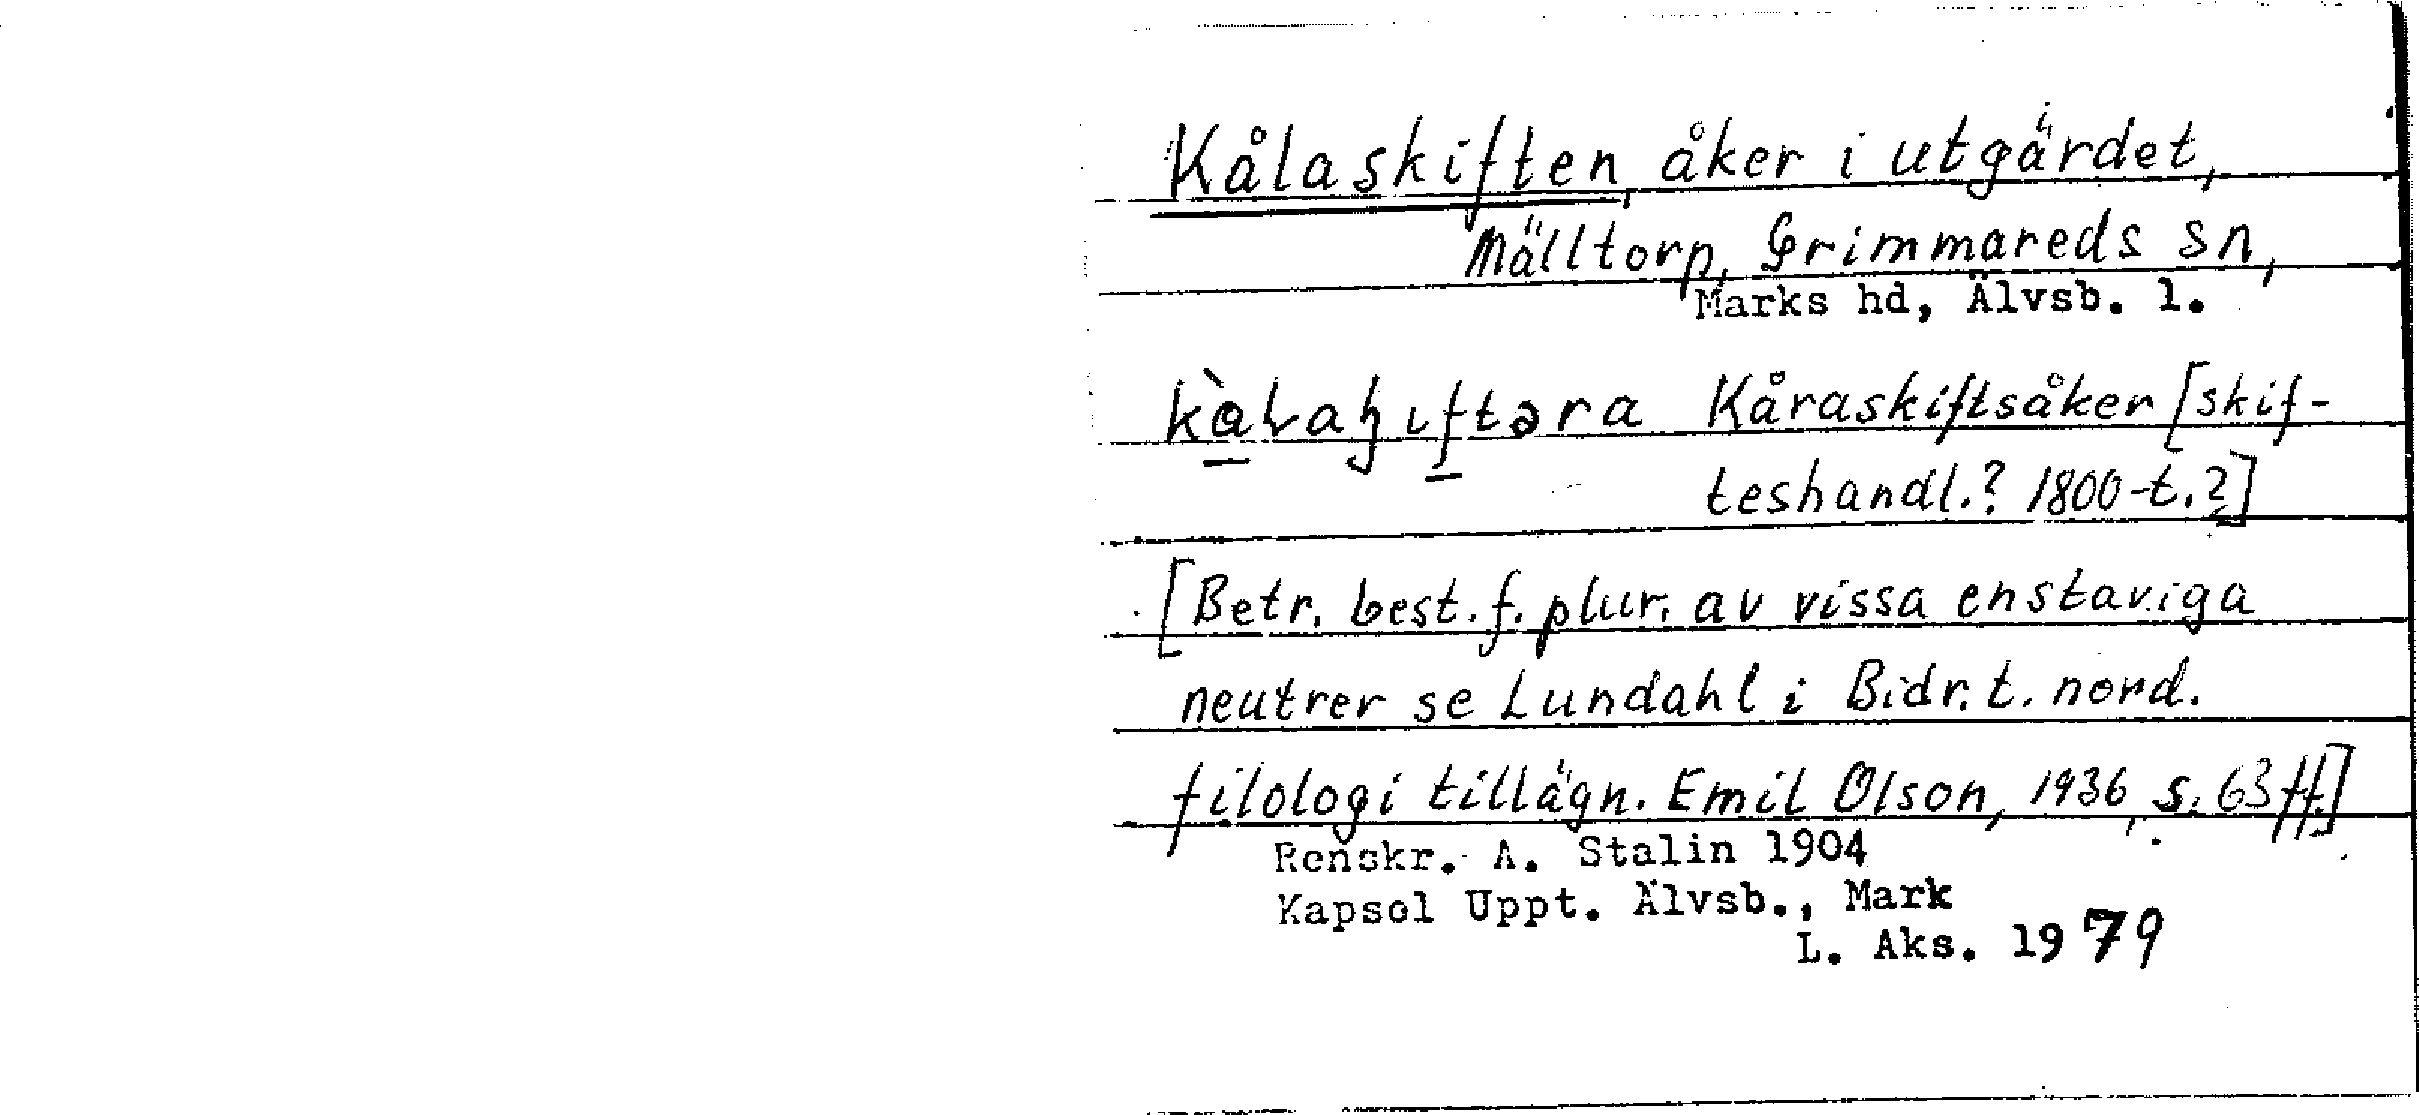 Kålaskiften, åker i utgärdet,
Mälltorp, Grimmareds sn,
Marks hd, Älvsb. l.
Kåraskiftsåker [skif-
teshandl.? 1800-t.?]
[Betr. best. f. plur. av vissa enstaviga
neutrer se Lundahl i Bidr. t. nord.
filologi tillägn. Emil Olson, 1936, s. 63 ff.]
Renskr. A. Stalin 1904
Kapsel Uppt. Älvsb., Mark
L. Aks. 1979